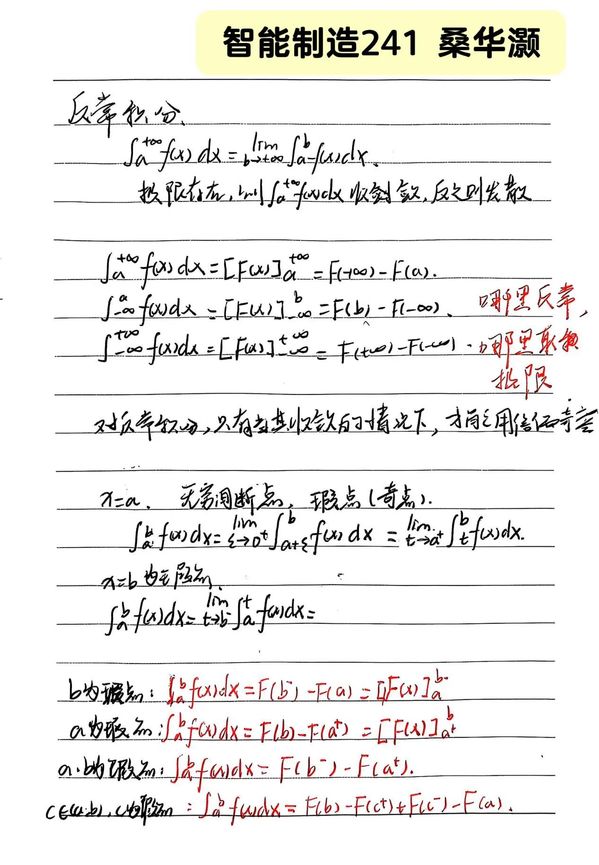 智能制造241 桑华灏
反常积分、
∫ₐ^{+∞} f(x)dx = lim_{b→+∞} ∫ₐ^b f(x)dx.
极限存在,则∫ₐ^{+∞} f(x)dx 收敛,反之则发散
∫ₐ^{+∞} f(x)dx = [F(x)]ₐ^{+∞} = F(+∞) - F(a).
∫_{-∞}^a f(x)dx = [F(x)]_{-∞}^b = F(b) - F(-∞). 哪里反常,
∫_{-∞}^{+∞} f(x)dx = [F(x)]_{-∞}^{+∞} = F(+∞) - F(-∞). 哪里取
极限
对反常积分,只有当其收敛的情况下,才用偶倍奇零
x=a. 无穷间断点,瑕点(奇点).
∫ₐ^b f(x)dx = lim_{ε→0⁺} ∫_{a+ε}^b f(x)dx = lim_{t→a⁺} ∫ₜ^b f(x)dx.
x=b 为瑕点
∫ₐ^b f(x)dx = lim_{t→b⁻} ∫ₐ^t f(x)dx =
b为瑕点: ∫ₐ^b f(x)dx = F(b⁻) - F(a) = [F(x)]ₐ^{b⁻}
a为瑕点: ∫ₐ^b f(x)dx = F(b) - F(a⁺) = [F(x)]_{a⁺}^b
a.b为瑕点: ∫ₐ^b f(x)dx = F(b⁻) - F(a⁺).
c∈(a,b), c为瑕点: ∫ₐ^b f(x)dx = F(b) - F(c⁺) + F(c⁻) - F(a).